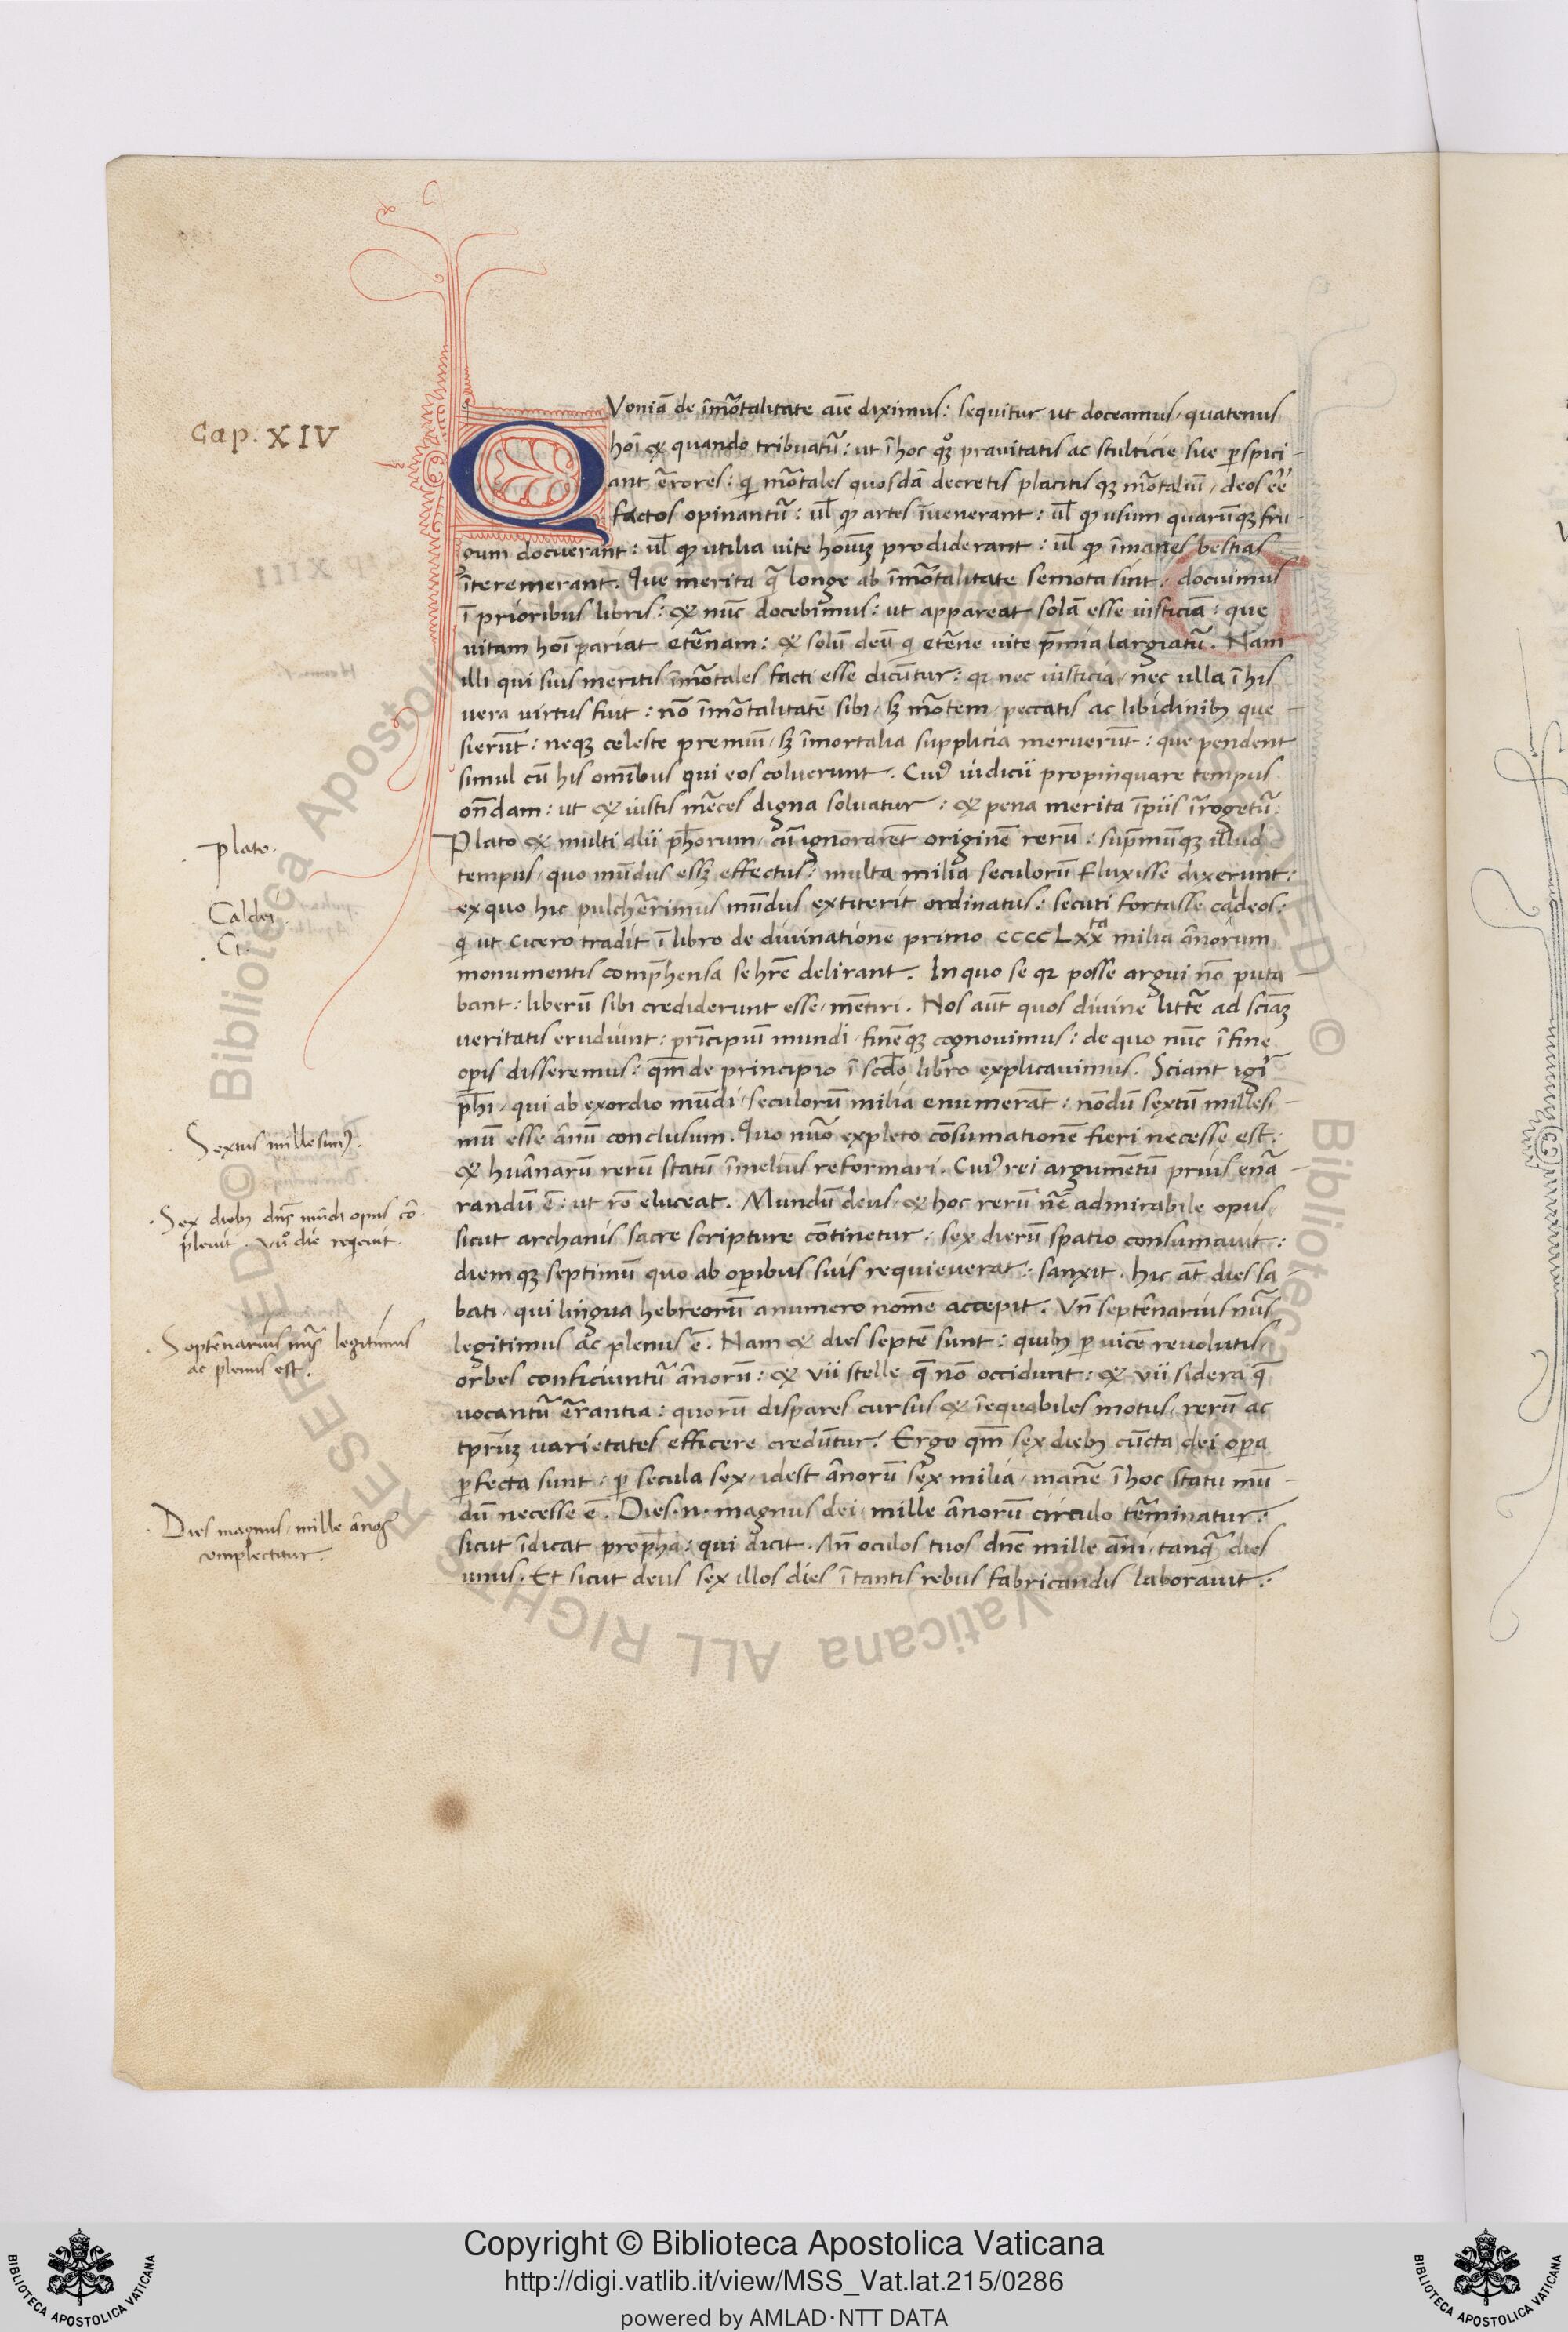 Cap. XIV
QVoniã de ĩmõtalitate aĩe diximus: sequitur ut doceamus, quatenus
hoĩ & quando tribuatũ: ut ĩ hoc quoq; prauitatis ac stulticie sue pspici-
ant ẽrores: q mõtales quosdã decretis placitis q; mõtaliũ, deos ẽe
factos opinantũ: ul̃ q artes ĩuenerant: ul̃ q usum quarũq; fru-
gum docuerant: ul̃ q utilia uite houũ prodiderant: ul̃ q ĩmanes bestias
ĩteremerant. Que merita q̃ longe ab ĩmõtalitate semota sint: docuimus
ĩ prioribus libris: & nũc docebimus: ut appareat solã esse iusticiã: que
uitam hoĩ pariat etẽnam: & solũ deũ q etẽne uite p̃mia largiatũ. Nam
illi qui suis meritis ĩmõtales facti esse dicũtur: qr nec iusticia, nec ulla ĩ his
uera uirtus fuit: nõ ĩmõtalitatẽ sibi, sꝫ mõtem, peccatis ac libidinibꝫ que-
sierũt: neqꝫ celeste premiũ, sꝫ ĩmortalia supplicia meruerũt: que pendent
simul cũ his omĩbus qui eos coluerunt. Cuiꝰ iudicii propinquare tempus
oñdam: ut & iustis mẽces digna soluatur: & pena merita ĩpiis ĩrogetũ.
Plato & multi alii ph̃orum, cũ ignorarẽt originẽ rerũ: sup̃mũqꝫ illud
tempus, quo mũdus essꝫ effectus: multa milia seculorũ fluxisse dixerunt:
ex quo hic pulchẽrimus mũdus extiterit ordinatus: secuti fortasse caldeos:
q ut Cicero tradit ĩ libro de diuinatione primo CCCCLXX ta milia ãnorum
monumentis comp̃hensa se hr̃e delirant. In quo se qr posse argui nõ puta-
bant: liberũ sibi crediderunt esse, mẽtiri. Nos aũt quos diuine litt̃e ad sciaꝫ
ueritatis erudiunt: prĩcipiũ mundi, finẽqꝫ cognouimus: de quo nũc ĩ fine
opis disseremus: qm̃ de principio ĩ scd̃o libro explicauimus. Sciant igĩ
ph̃i, qui ab exordio mũdi, seculorũ milia enumerãt: nõdũ sextũ millesi-
mũ esse ãnũ conclusum. Quo nũo expleto cõsumationẽ fieri necesse est:
& huãnarũ rerũ statũ ĩ melius reformari. Cuiꝰ rei argumẽtũ prius enã-
randũ ẽ: ut rõ eluceat. Mundũ deus, & hoc rerũ nẽ admirabile opus,
sicut archanis sacre scripture cõtinetur: sex dierũ spatio consumauit:
diem qꝫ septimũ quo ab opibus suis requieuerat: sanxit. hic aũt dies sa-
bati, qui lingua hebreorũ anumero nomẽ accepit. Vñ septẽnarius nũs
legitimus ac plenus ẽ. Nam & dies septẽ sunt: quibꝫ p uicẽ reuolutis,
orbes conficiuntũ ãnorũ: & vii stelle q̃ nõ occidunt: & vii sidera q̃
uocantũ ẽrantia: quorũ dispares cursus & ĩequabiles motus, rerũ ac
tpr̃uꝫ uarietates efficere credũtur. Ergo qm̃ sex diebꝫ cũcta dei opa
pfecta sunt: p secula sex, idest ãnorũ sex milia, manẽe ĩ hoc statu mũ-
dũ necesse ẽ. Dies.n. magnus dei, mille ãnorũ circulo tẽminatur:
sicut ĩdicat proph̃a: qui dicit. Añ oculos tuos dñe mille ãni, tanq̃ dies
unus. Et sicut deus sex illos dies ĩ tantis rebus fabricandis laborauit:
Plato.
Caldei
Ci.
Sextus millesimꝰ.
Sex diebꝫ dñs mũdi opus cõ-
pleuit. VIIo die reqeuit.
Septẽnarius nũs legitimus
ac plenus est.
Dies magnus, mille ãnoꝝ
complectitur.
© Biblioteca Apostolica Vaticana ALL RIGHTS RESERVED
Copyright © Biblioteca Apostolica Vaticana
http://digi.vatlib.it/view/MSS_Vat.lat.215/0286
powered by AMLAD·NTT DATA
BIBLIOTECA APOSTOLICA VATICANA
BIBLIOTECA APOSTOLICA VATICANA